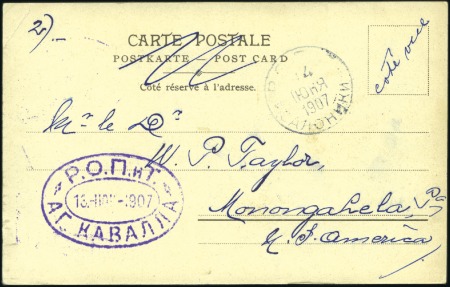 2).-
CARTE POSTALE
POSTKARTE — POST CARD
Côté réservé à l'adresse.
côté vue
4
1907
Mr le Dr
W. P. Taylor,
Monongahela, Pa
N. S. America
Р.О.П.иТ
1907
АГ. КАВАЛЛА